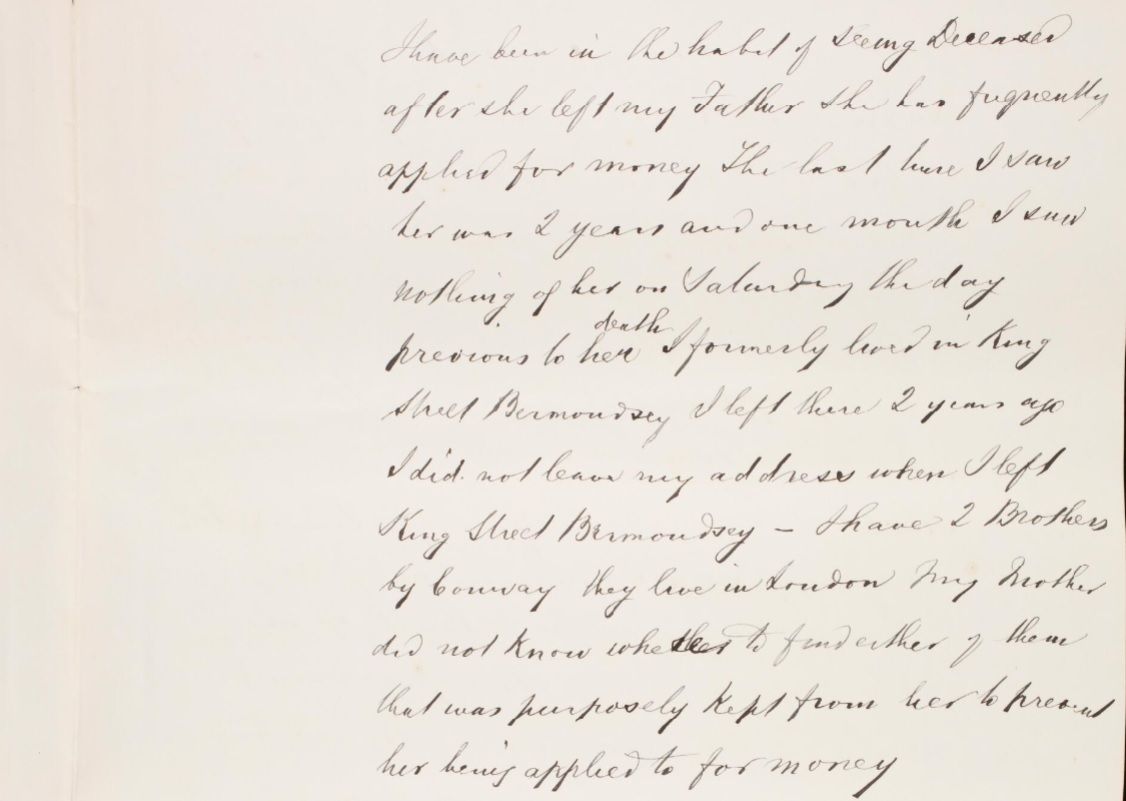 I have been in the habit of seeing Deceased
after she left my Father She has frequently
applied for money The last time I saw
her was 2 years and one month I saw
nothing of her on Saturday the day
previous to her death I formerly lived in King
Street Bermondsey I left there 2 years ago
I did not leave my address when I left
King Street Bermondsey – I have 2 Brothers
by Conway they live in London My Mother
did not know where to find either of them
that was purposely kept from her to prevent
her being applied to for money